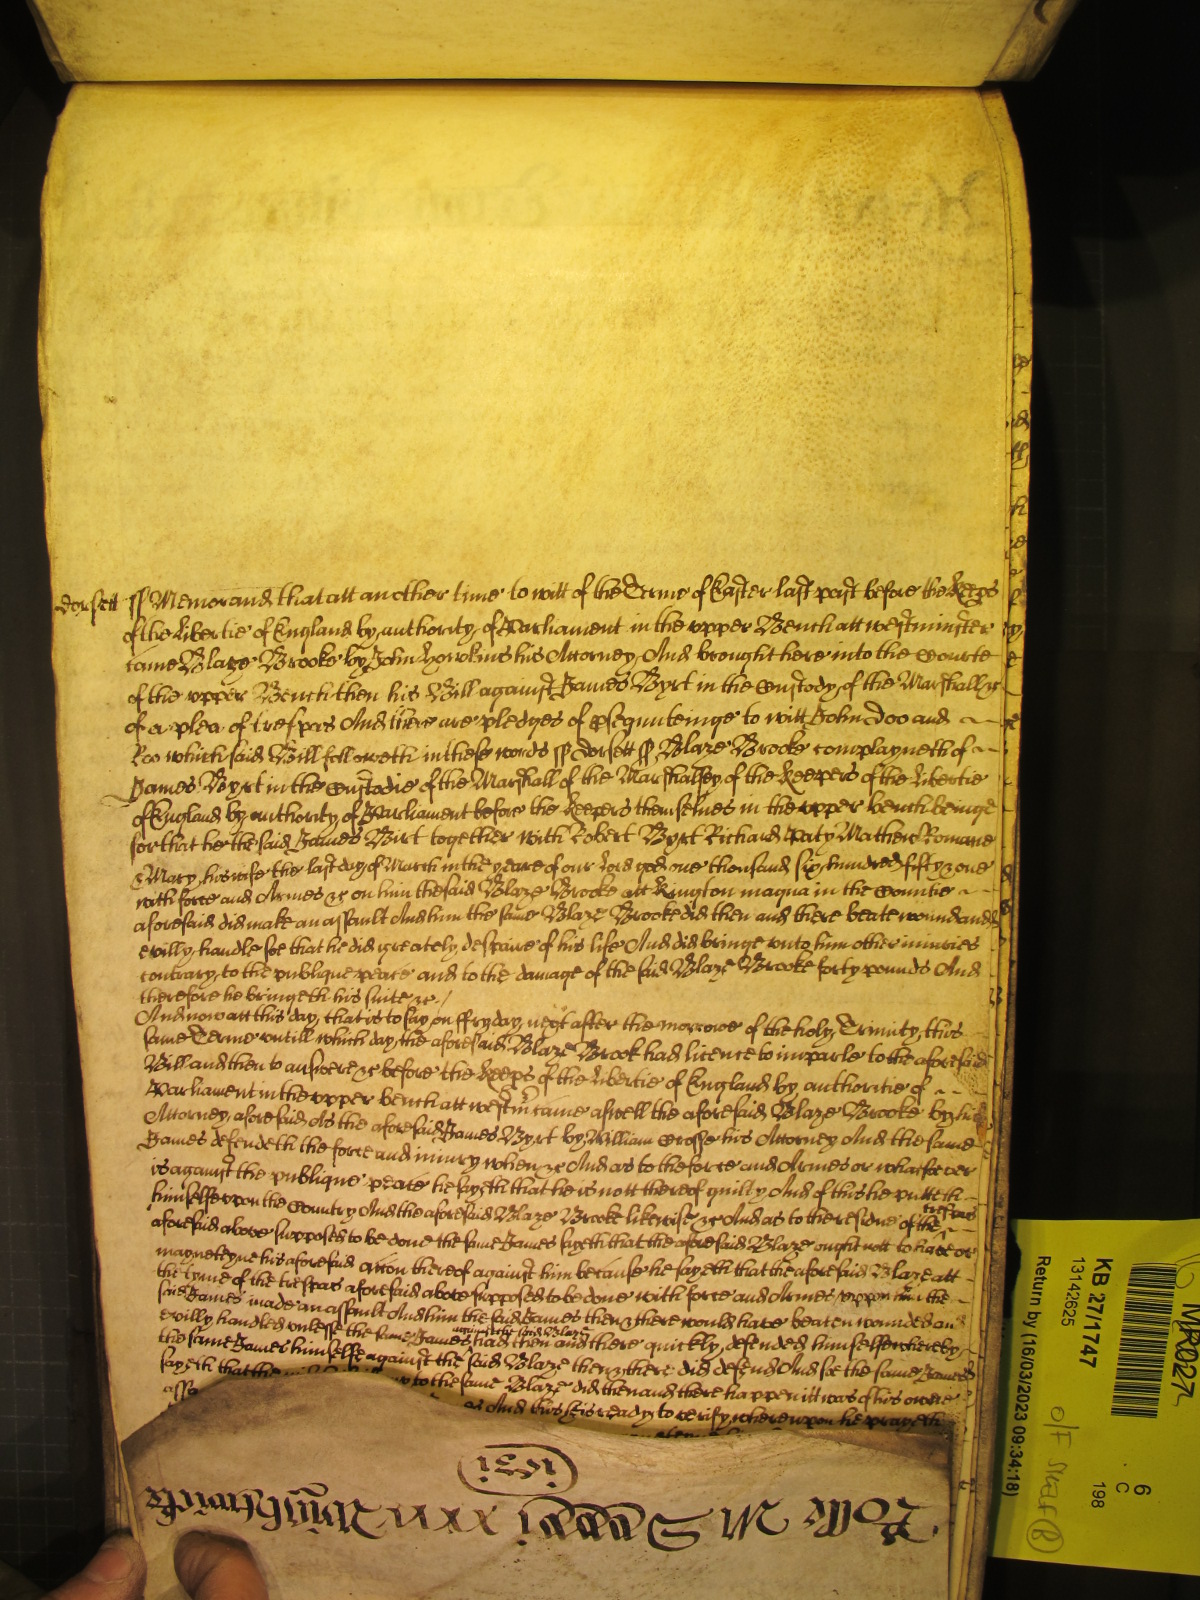 dorsett ss Memorand that att another time to witt of the Terme of Easter last past before the Keeps
of the Libertie of England by authority of Parliament in the upper Bench att westminster
came Blaze Brooke by John Hawkins his Attorney And brought here into the Courte
of the upper Bench then his Bill against James Byrt in the Custody of the Marshall &c
of a plea of trespas And there are pledges of psequuteinge to witt John Doo and
Roo which said Bill followeth in these words ss dorsett ss Blaze Brooke complayneth of
James Byrt in the Custodie of the Marshall of the Marshallsey of the Keepers of the Libertie
of England by authority of Parliament before the Keepers themselves in the upper bench beinge
for that he the said James Birt together with Robert Byrt Richard Paty Mathew Romane
& Mary his wife the last day of March in the yeare of our Lord god one thousand six hundred fifty & one
with force and Armes &c on him the said Blaze Brooke att Kington magna in the Countie
aforesaid did make an assault And him the same Blaze Brooke did then and there beate wound and
evilly handle soe that he did greately despaire of his life And did bringe unto him other iniuries
contrary to the publique peace and to the damage of the said Blaze Brooke forty pounds And
therefore he bringeth his suite &c /
And now att this day that is to say on ffryday next after the morrowe of the holy Trinity this
same Terme untill which day the aforesaid Blaze Brook had licence to imparle to the aforesaid
Bill and then to answere &c before the Keeps of the Libertie of England by authoritie of
Parliament in the upper bench att westm came aswell the aforesaid Blaze Brooke by his
Attorney aforesaid As the aforesaid James Byrt by William Crosse his Attorney And the same
James defendeth the force and iniury when &c And as to the force and Armes or whatsoever
is against the publique peace he sayeth that he is nott thereof guilty And of this he putteth
himselfe upon the Country And the aforesaid Blaze Brooke likewise &c And as to the residue of the trespas
aforesaid above supposed to be done the same James sayeth that the aforesaid Blaze ought nott to have or
maynteyne his aforesaid accon thereof against him because he sayeth that the aforesaid Blaze att
the tyme of the trespas aforesaid above supposed to be done with force and Armes uppon him the
said James made an assault And him the said James then & there would have beaten wounded and
evilly handled unlesse the same James had then and there against the said Blaze quickly defended himselfe whereby
the same James himselfe against the said Blaze then & there did defend And soe the same James
sayeth that the to the same Blaze did then and there happen itt was of his owne
asso And this he is ready to verify whereupon he prayeth
Rotlo M S xxx
KB 27/1747
13142625
Return by (16/03/2023 09:34:18)
6
C
198
MR0027